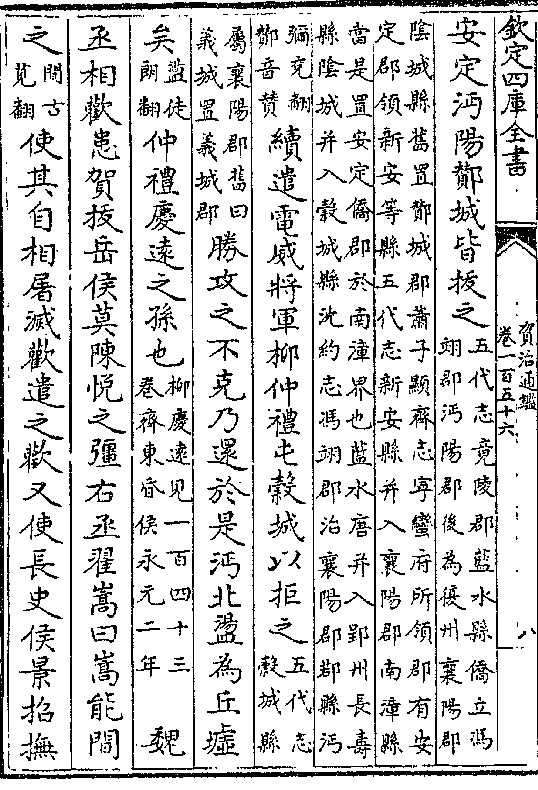 欽定四庫全書
資治通鑑
卷一百五十六
八
安定沔陽酇城皆拔之
五代志竟陵郡藍水縣僑立馮
翊郡沔陽郡後為復州襄陽郡
陰城縣舊置酇城郡蕭子顯齊志寧蠻府所領郡有安
定郡領新安等縣五代志新安縣并入襄陽郡南漳縣
當是置安定僑郡於南漳界也藍水唐并入郢州長壽
縣陰城并入穀城縣沈約志馮翊郡治襄陽郡鄀縣沔
彌兖翻
酇音贊
續遣電威將軍柳仲禮屯穀城以拒之
五代志
穀城縣
屬襄陽郡舊曰
義城置義城郡
勝攻之不克乃還於是沔北盪為丘墟
矣
盪徒
朗翻
仲禮慶遠之孫也
柳慶遠見一百四十三
卷齊東昏侯永元二年
魏
丞相歡患賀拔岳侯莫陳悅之彊右丞翟嵩曰嵩能間
之
間古
莧翻
使其自相屠滅歡遣之歡又使長史侯景招撫